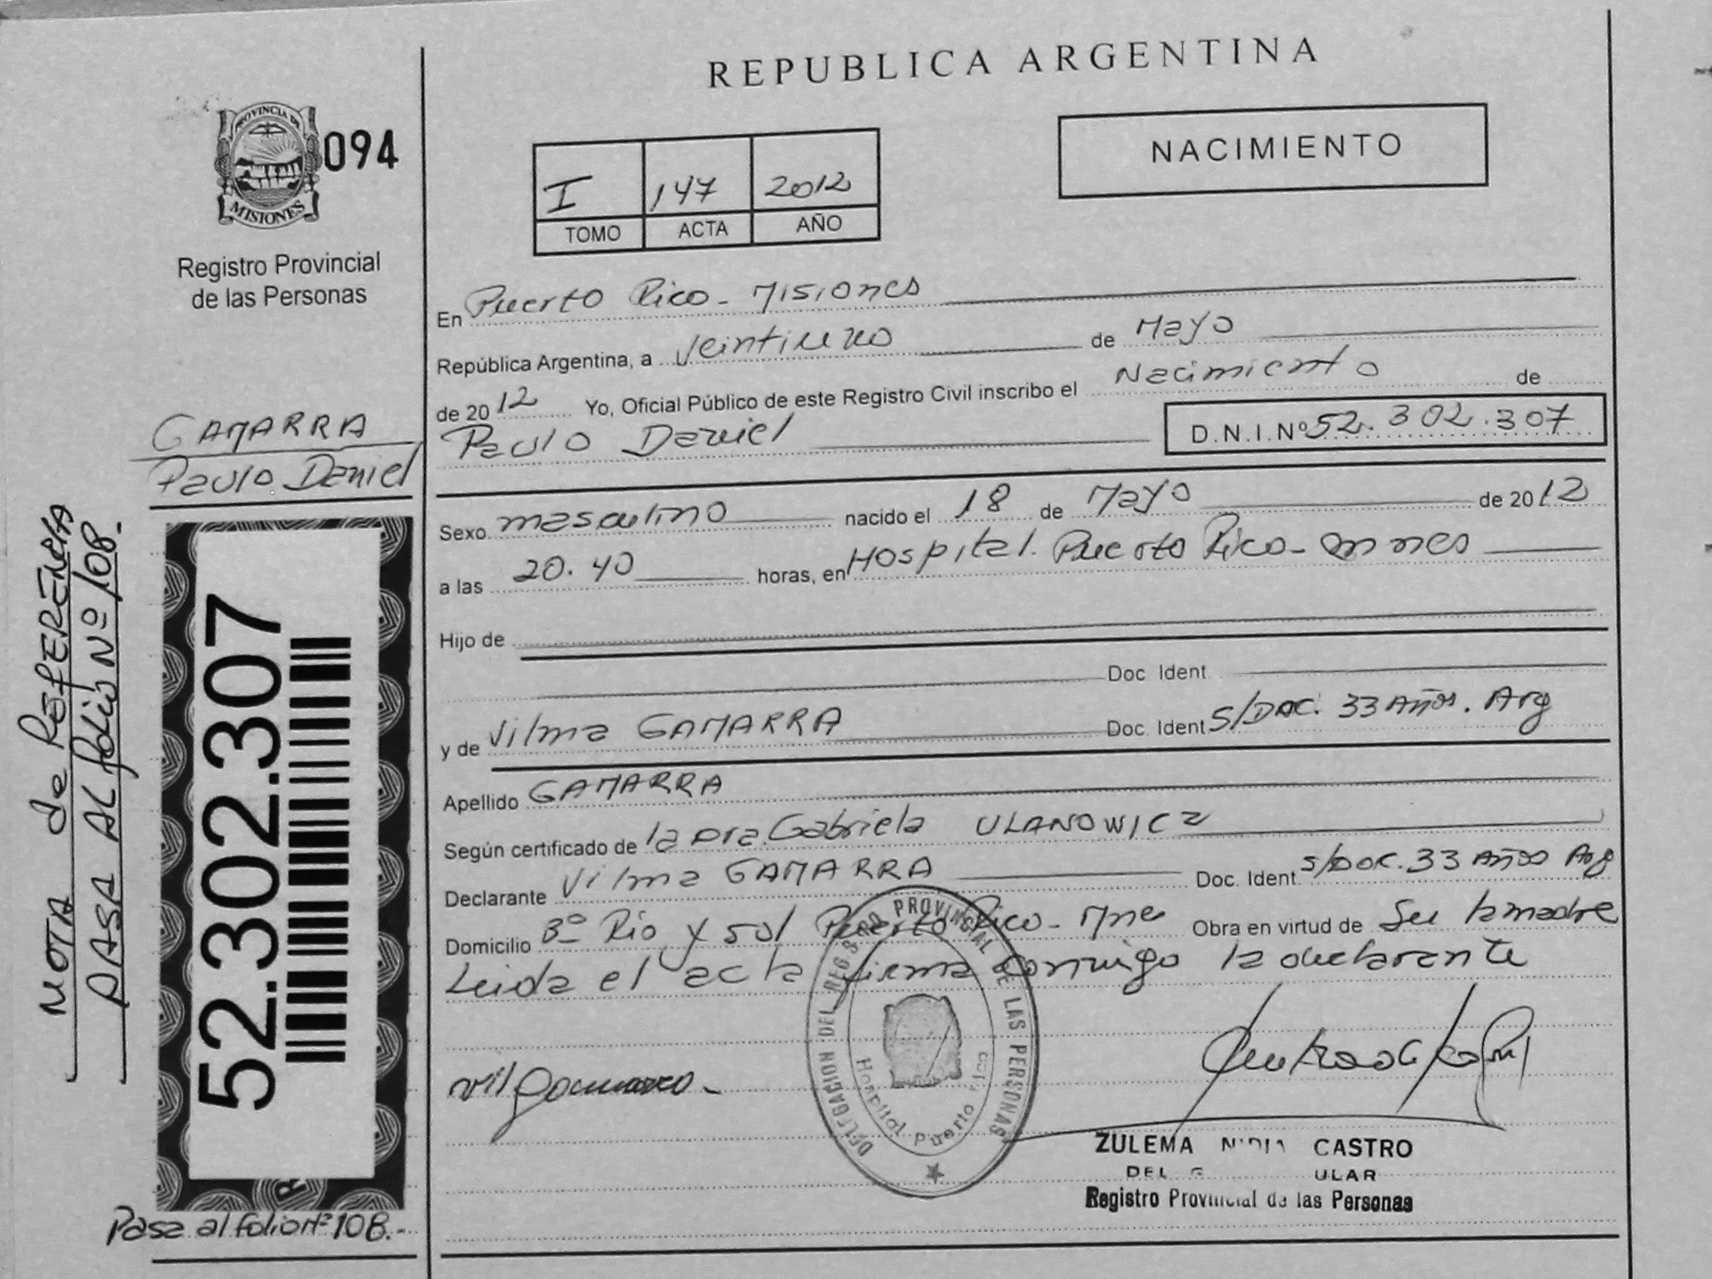 REPUBLICA ARGENTINA
PROVINCIA DE
MISIONES
094
Registro Provincial
de las Personas
NACIMIENTO
I 147 2012
TOMO ACTA AÑO
En Puerto Rico - Misiones
República Argentina, a veintiuno de Mayo
de 2012 Yo, Oficial Público de este Registro Civil inscribo el Nacimiento de
Paulo Daniel D.N.I.Nº 52.302.307
GAMARRA
Paulo Daniel
Sexo masculino nacido el 18 de Mayo de 2012
a las 20.40 horas, en Hospital Puerto Rico - mnes
Hijo de
Doc. Ident.
y de Vilma GAMARRA Doc. Ident S/DOC. 33 Años. Arg
Apellido GAMARRA
Según certificado de la Dra. Gabriela ULANOWICZ
Declarante Vilma GAMARRA Doc. Ident. S/DOC. 33 Años Arg
Domicilio Bº Rio y sol Puerto Rico - Mne Obra en virtud de Su la madre
Leida el acta firma conmigo la declarante
NOTA de REFERENCIA
PASA AL folio Nº 108.
52.302.307
Pasa al folio Nº 108.-
DELEGACION DEL REGISTRO PROVINCIAL DE LAS PERSONAS
Hospital Puerto Rico
ZULEMA NIDIA CASTRO
Registro Provincial de las Personas